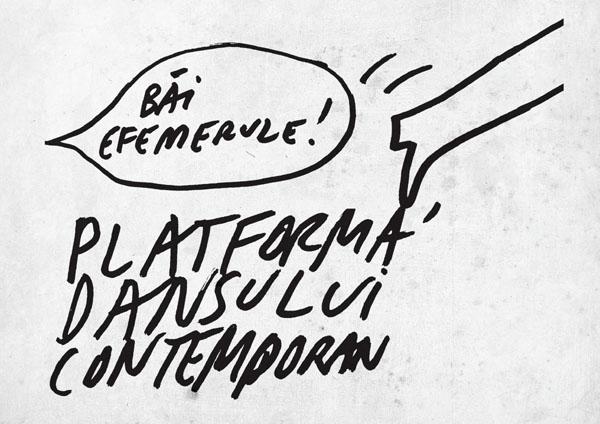 BĂI
EFEMERULE!
PLATFORMA
DANSULUI
CONTEMPORAN